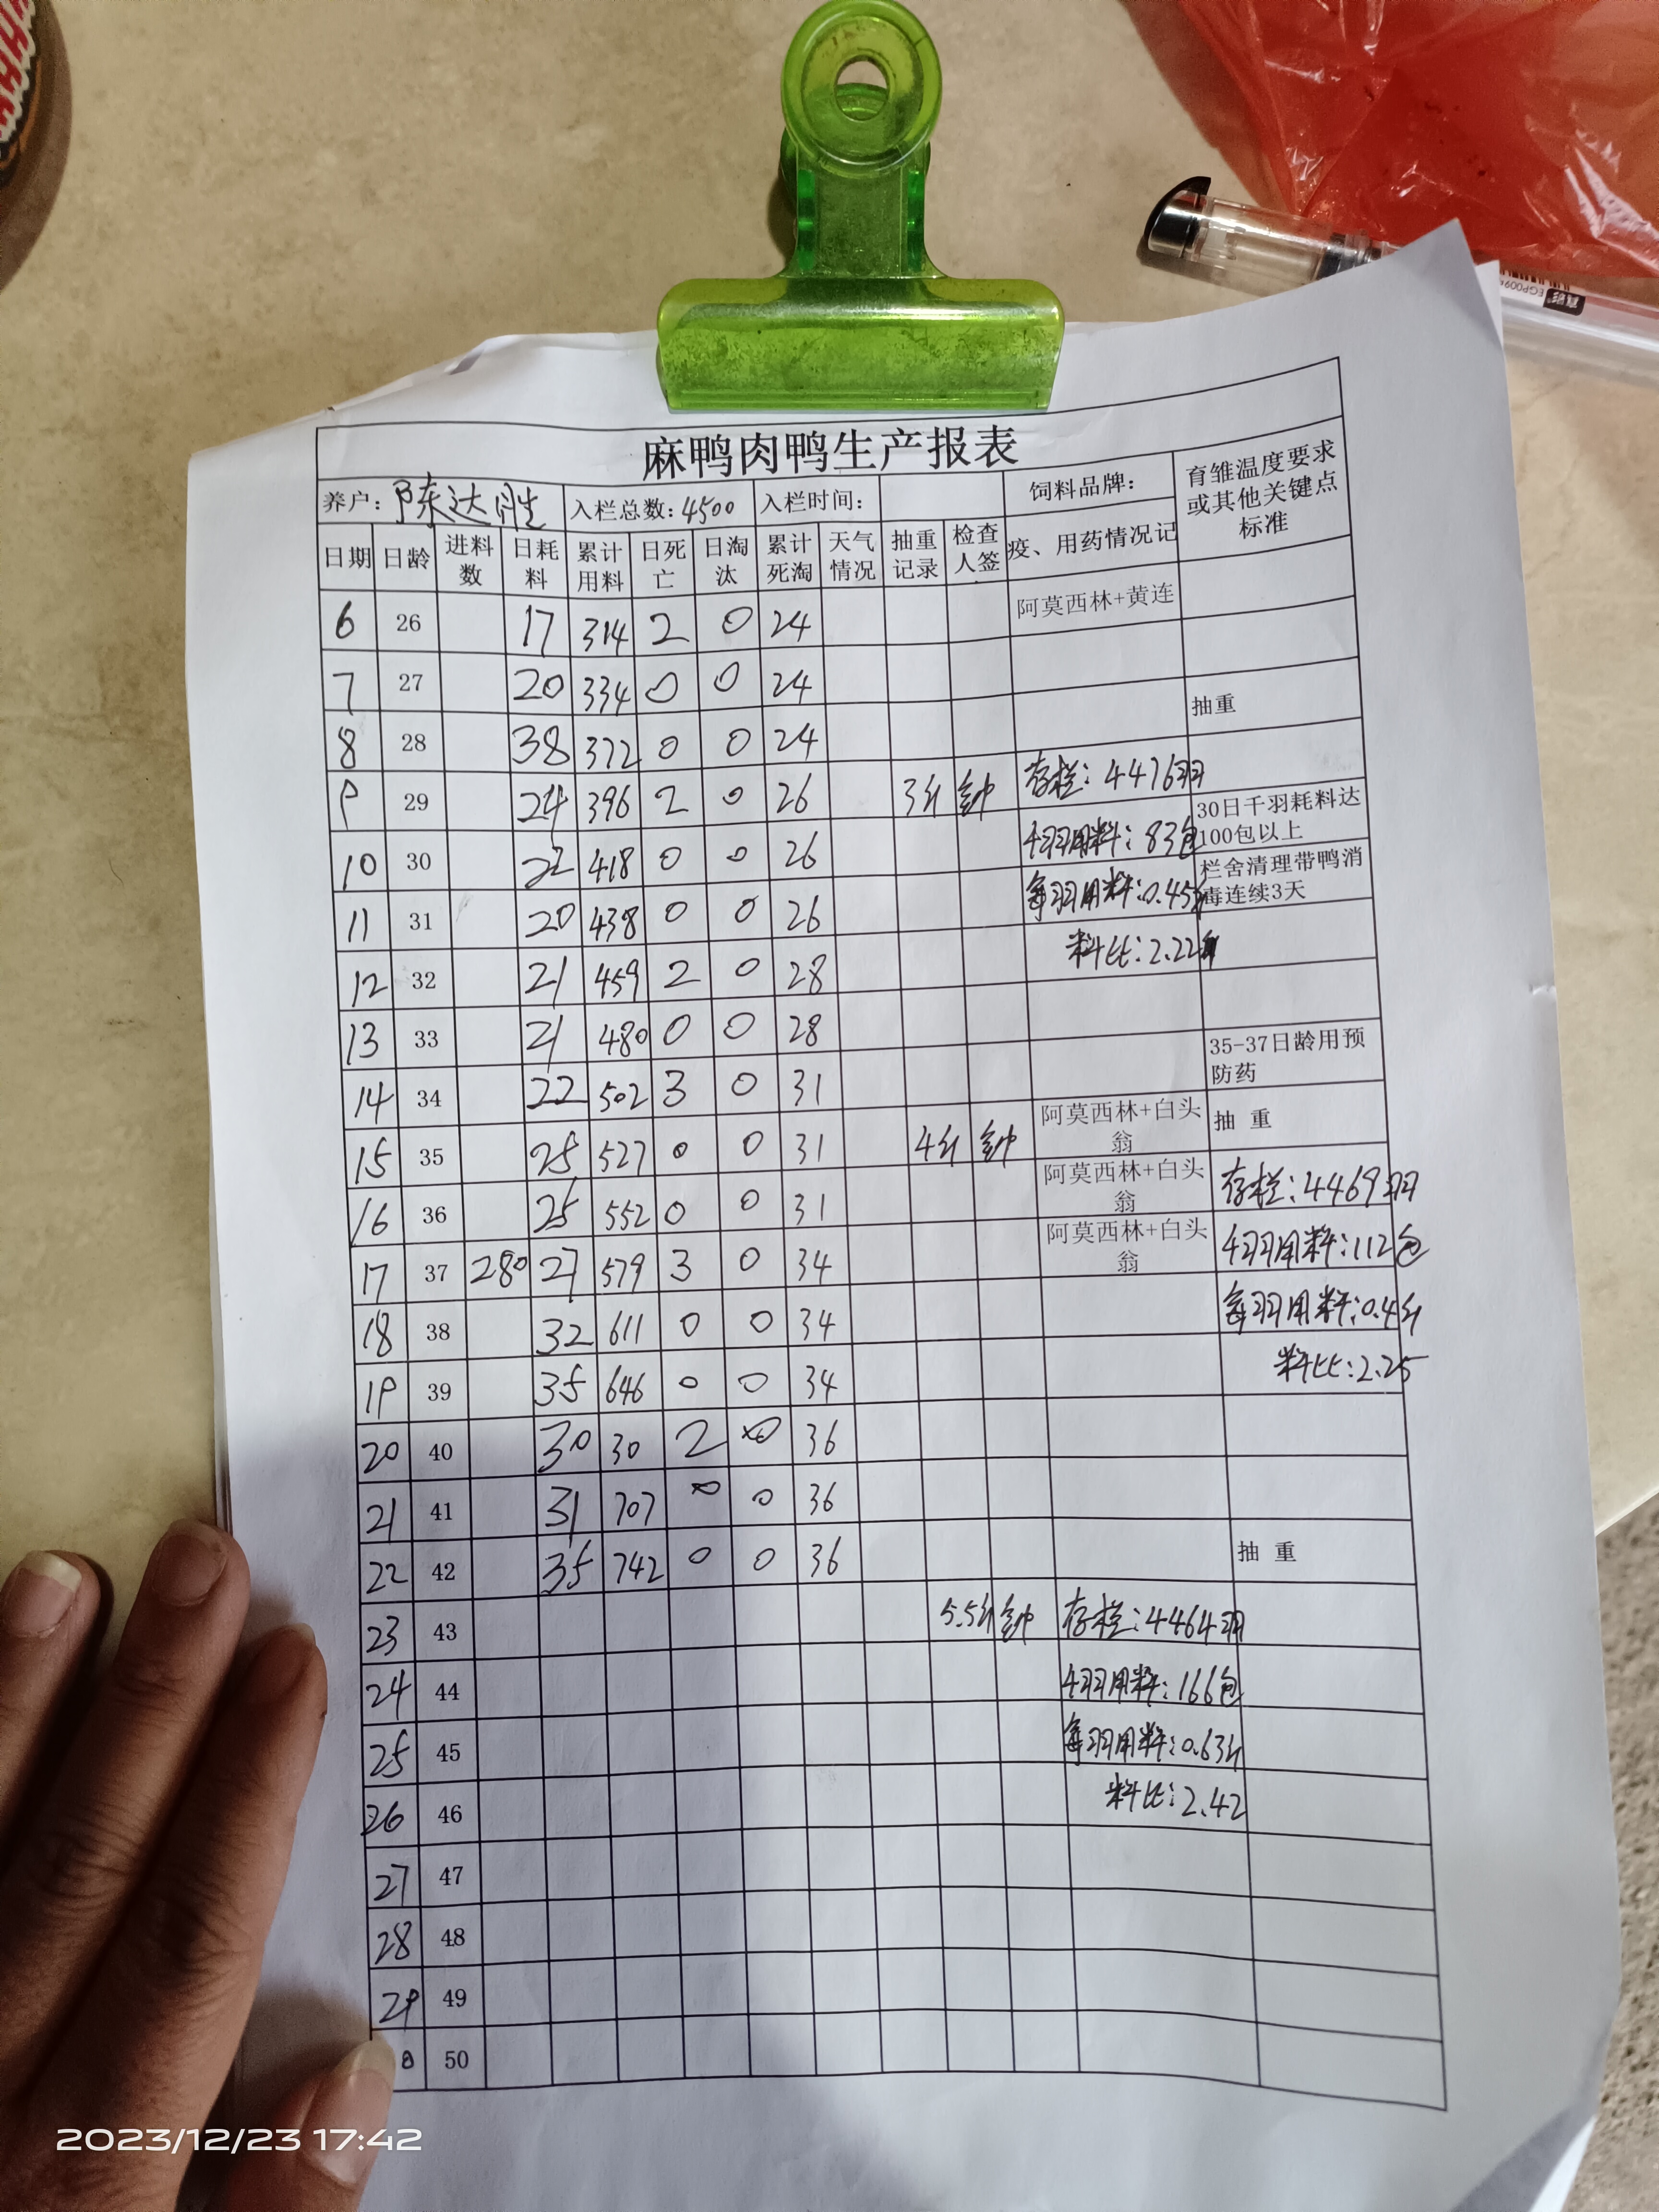 麻鸭肉鸭生产报表
养户：陈达胜 入栏总数：4500 入栏时间： 饲料品牌： 育雏温度要求或其他关键点标准
日期 日龄 进料数 日耗料 累计用料 日死亡 日淘汰 累计死淘 天气情况 抽重记录 检查人签 疫、用药情况记
6 26 17 314 2 0 24 阿莫西林+黄连
7 27 20 334 0 0 24
8 28 38 372 0 0 24 抽重
9 29 24 396 2 0 26 3斤 钟 存栏：4476羽
10 30 22 418 0 0 26 千羽用料：83包 30日千羽耗料达100包以上
11 31 20 438 0 0 26 每羽用料：0.45斤 栏舍清理带鸭消毒连续3天
12 32 21 459 2 0 28 料比：2.22
13 33 21 480 0 0 28
14 34 22 502 3 0 31 35-37日龄用预防药
15 35 25 527 0 0 31 4斤 钟 阿莫西林+白头翁 抽 重
16 36 25 552 0 0 31 阿莫西林+白头翁 存栏：4469羽
17 37 280 27 579 3 0 34 阿莫西林+白头翁 千羽用料：112包
18 38 32 611 0 0 34 每羽用料：0.4斤
19 39 35 646 0 0 34 料比：2.25
20 40 30 30 2 0 36
21 41 31 707 0 0 36
22 42 35 742 0 0 36 抽 重
23 43 5.5斤 钟 存栏：4464羽
24 44 千羽用料：166包
25 45 每羽用料：0.63斤
26 46 料比：2.42
27 47
28 48
29 49
50
2023/12/23 17:42